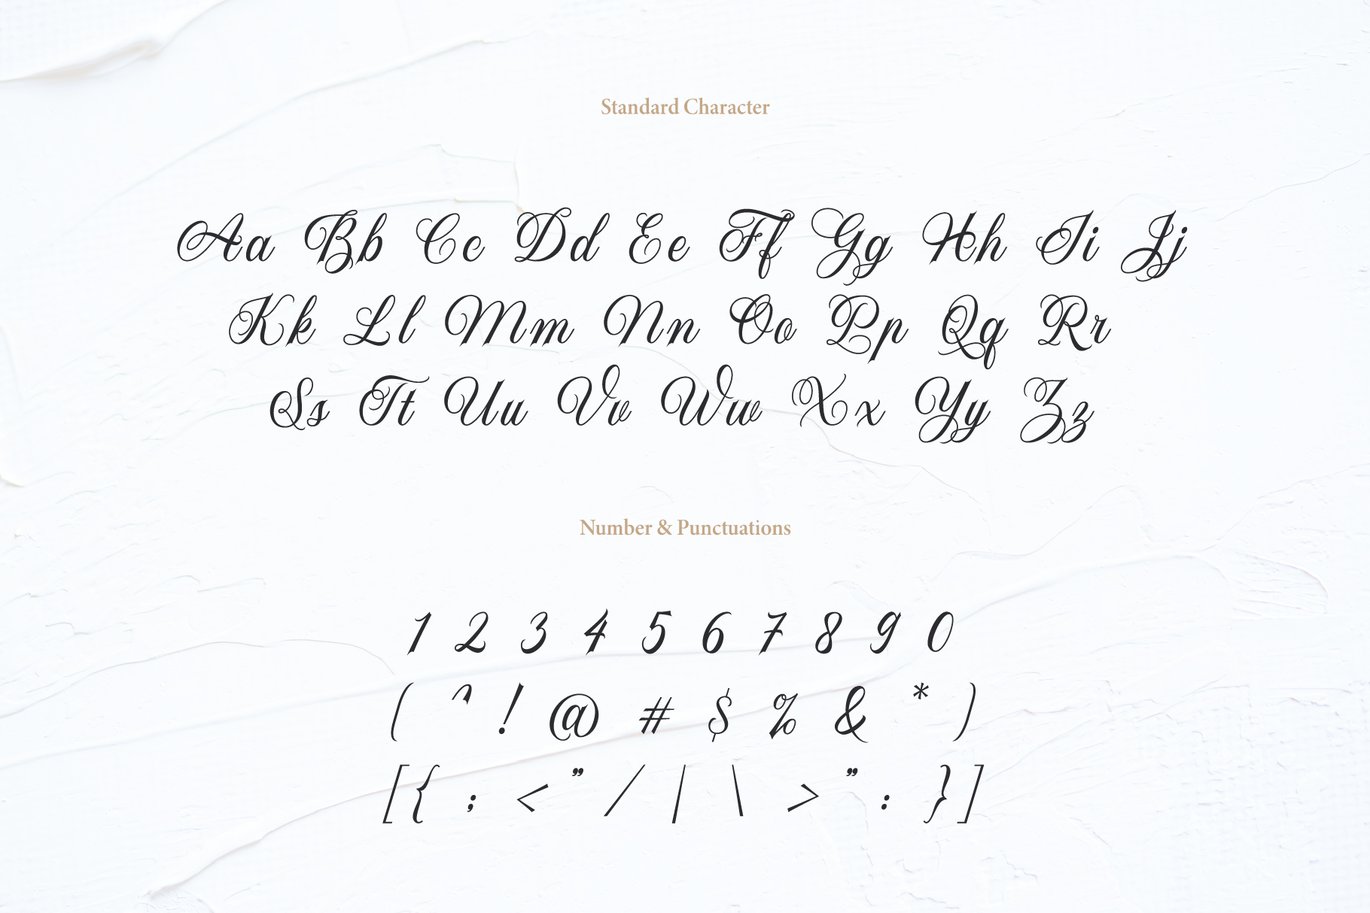 Standard Character
Aa Bb Cc Dd Ee Ff Gg Hh Ii Jj
Kk Ll Mm Nn Oo Pp Qq Rr
Ss Tt Uu Vv Ww Xx Yy Zz
Number & Punctuations
1 2 3 4 5 6 7 8 9 0
( ^ ! @ # $ % & * )
[ { ; < " / | \ > " : } ]